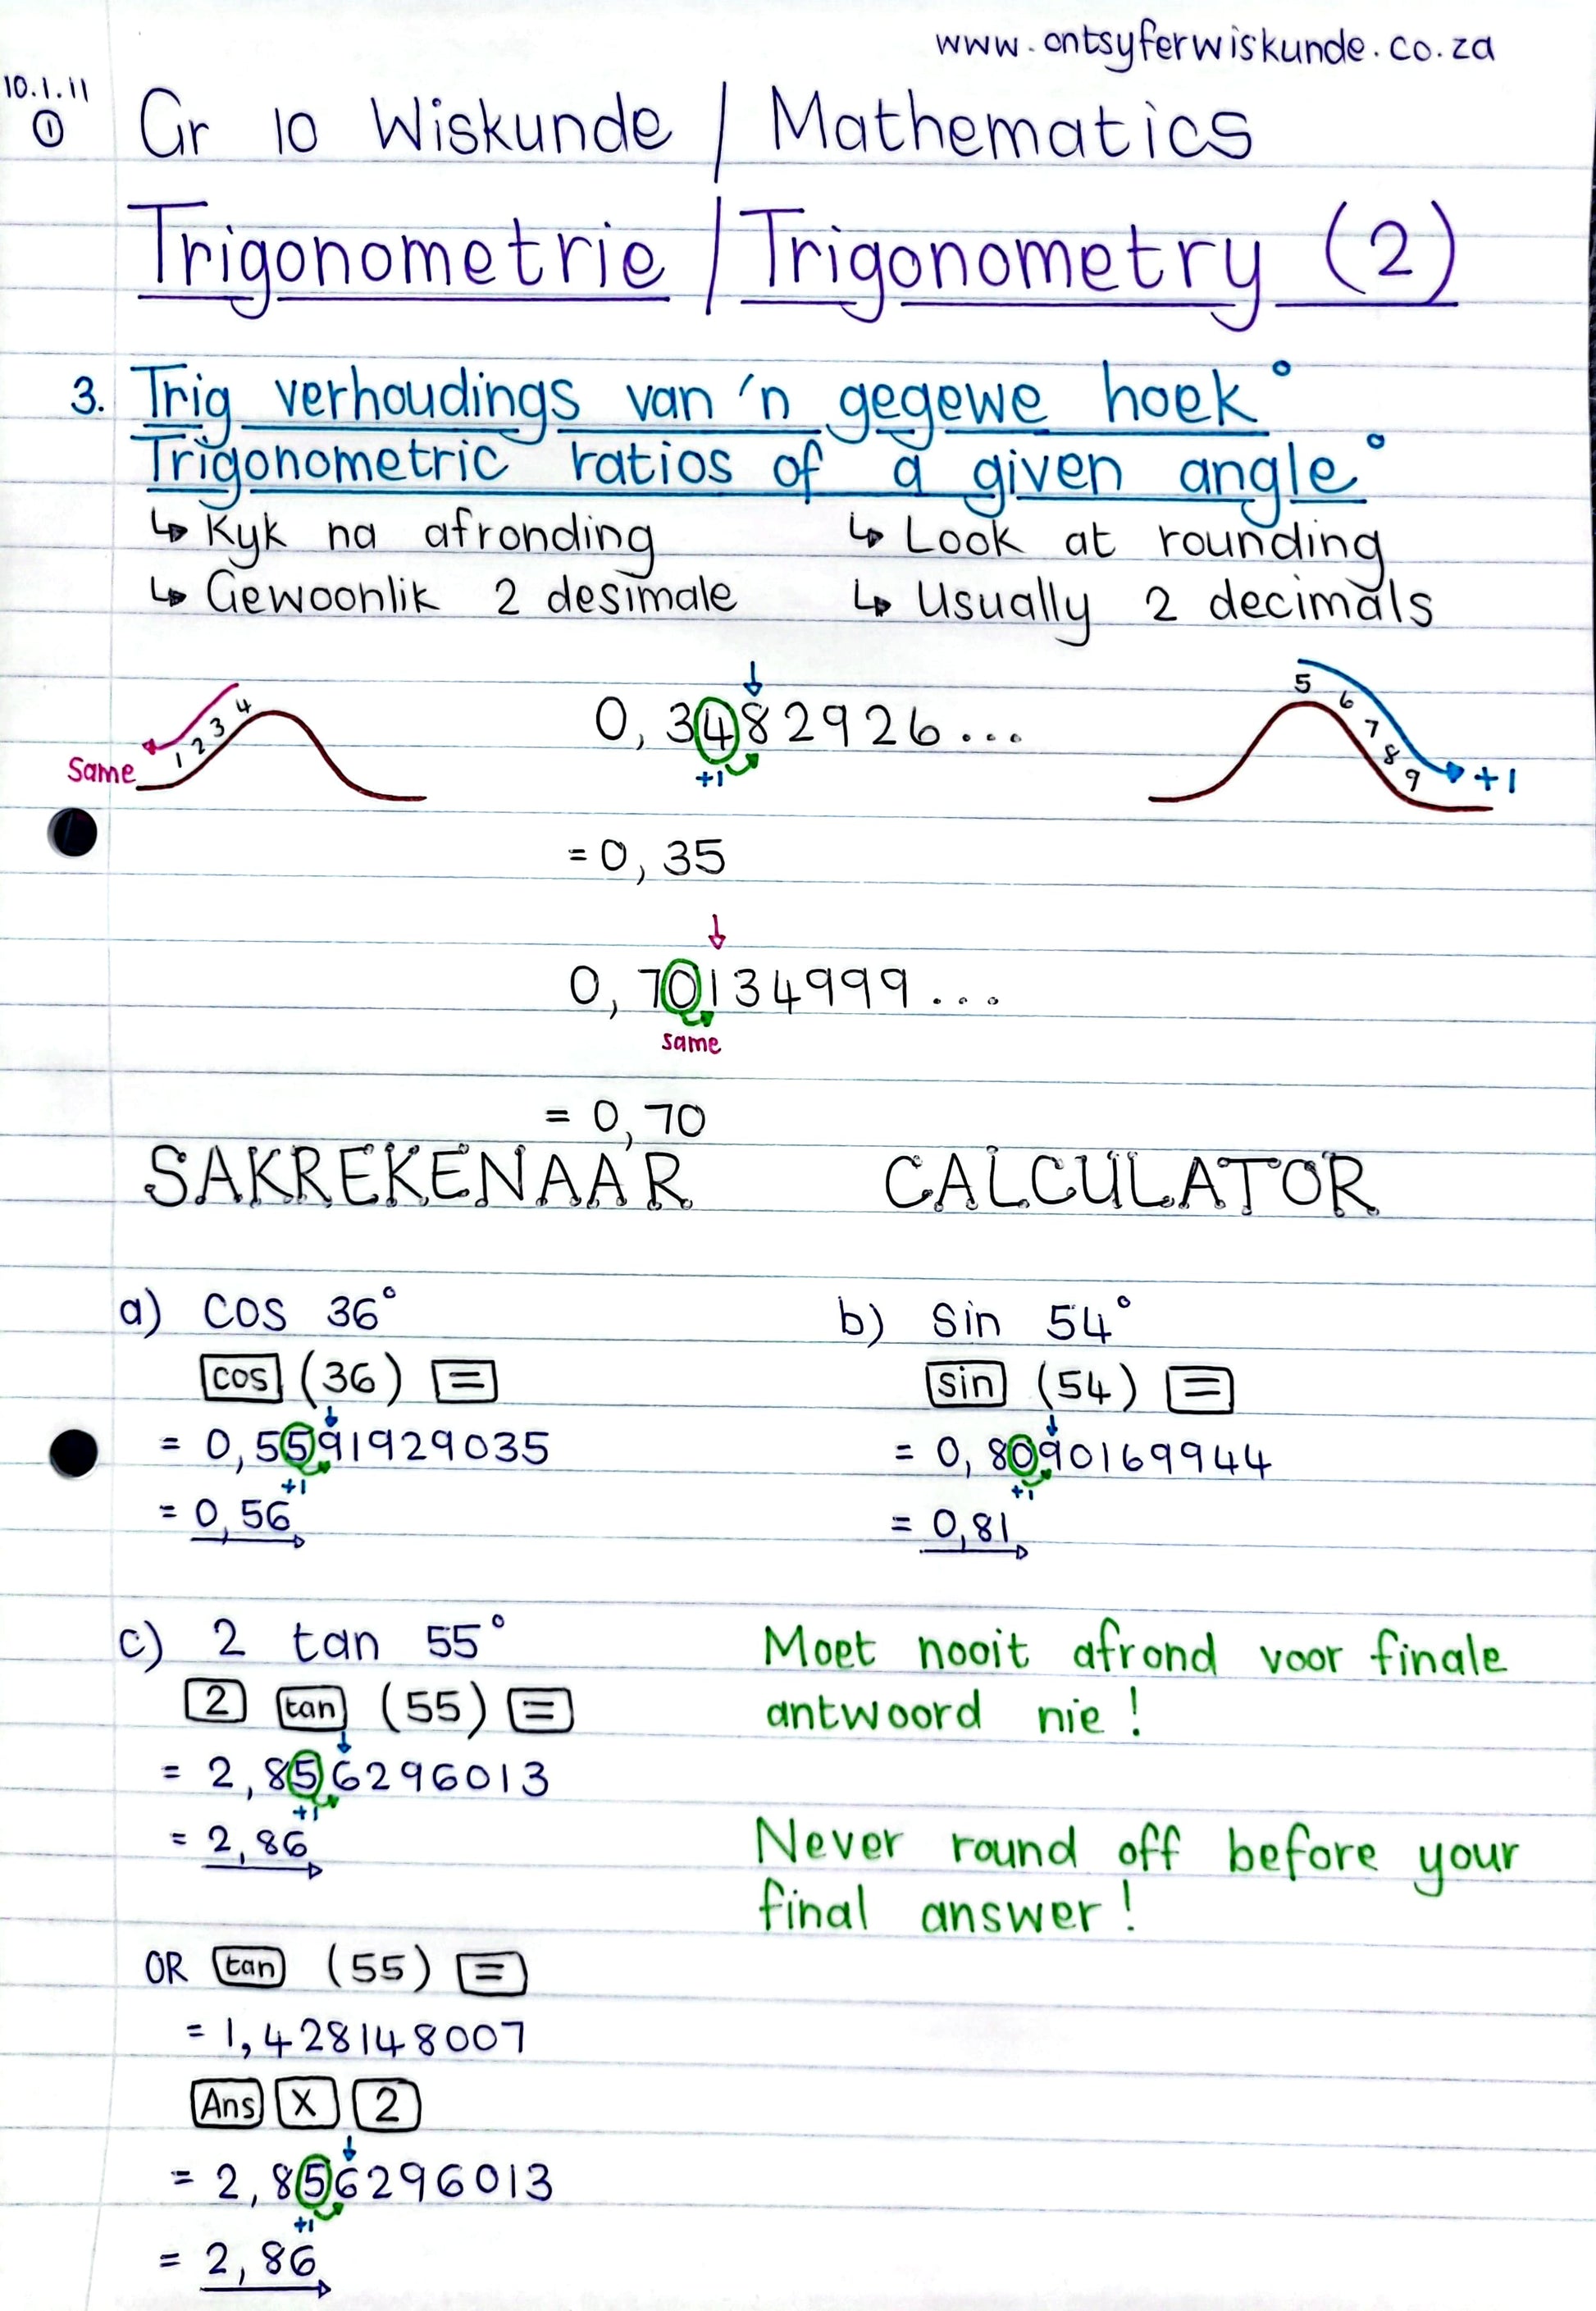 www.ontsyferwiskunde.co.za
10.1.11
①
Gr 10 Wiskunde / Mathematics
Trigonometrie / Trigonometry (2)
3. Trig verhoudings van 'n gegewe hoek°
Trigonometric ratios of a given angle°
↳ Kyk na afronding ↳ Look at rounding
↳ Gewoonlik 2 desimale ↳ Usually 2 decimals
Same 1 2 3 4
0,3482926...
+1
5 6 7 8 9 +1
= 0,35
0,70134999...
same
= 0,70
SAKREKENAAR CALCULATOR
a) cos 36° b) Sin 54°
cos (36) = sin (54) =
= 0,5591929035 = 0,8090169944
+1 +1
= 0,56 = 0,81
c) 2 tan 55° Moet nooit afrond voor finale
2 tan (55) = antwoord nie!
= 2,856296013
+1
= 2,86 Never round off before your
final answer!
OR tan (55) =
= 1,428148007
Ans X 2
= 2,856296013
+1
= 2,86